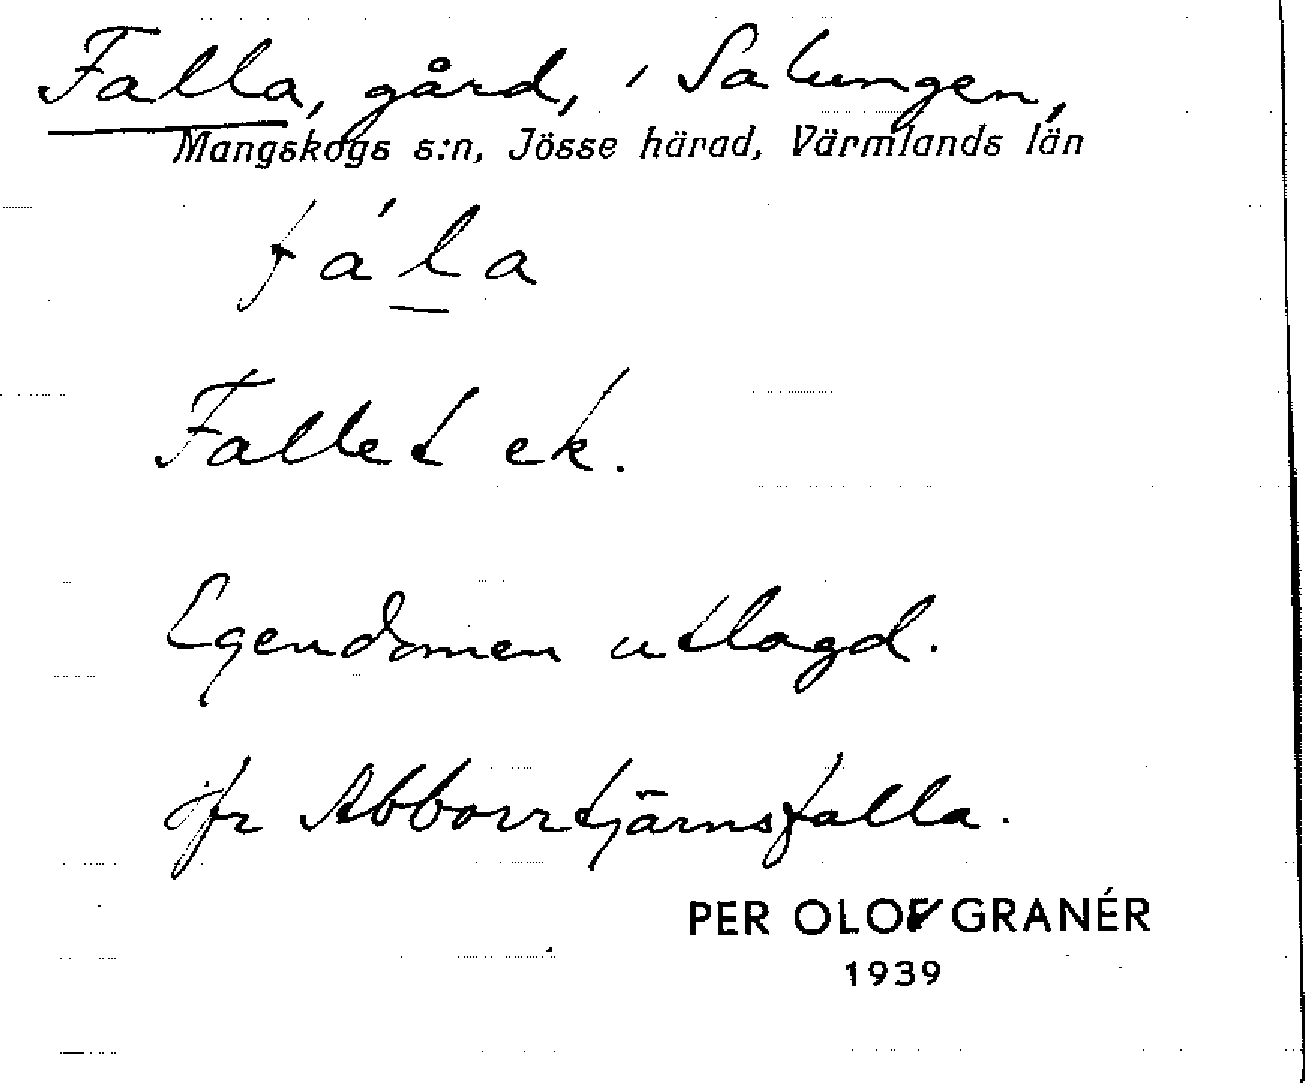 Falla, gård, i Salungen,
Mangskogs s:n, Jösse härad, Värmlands län
fá̀la
Fallet ek.
Egendomen utlagd.
jfr Abborrtjärnsfalla.
PER OLOF GRANÉR
1939